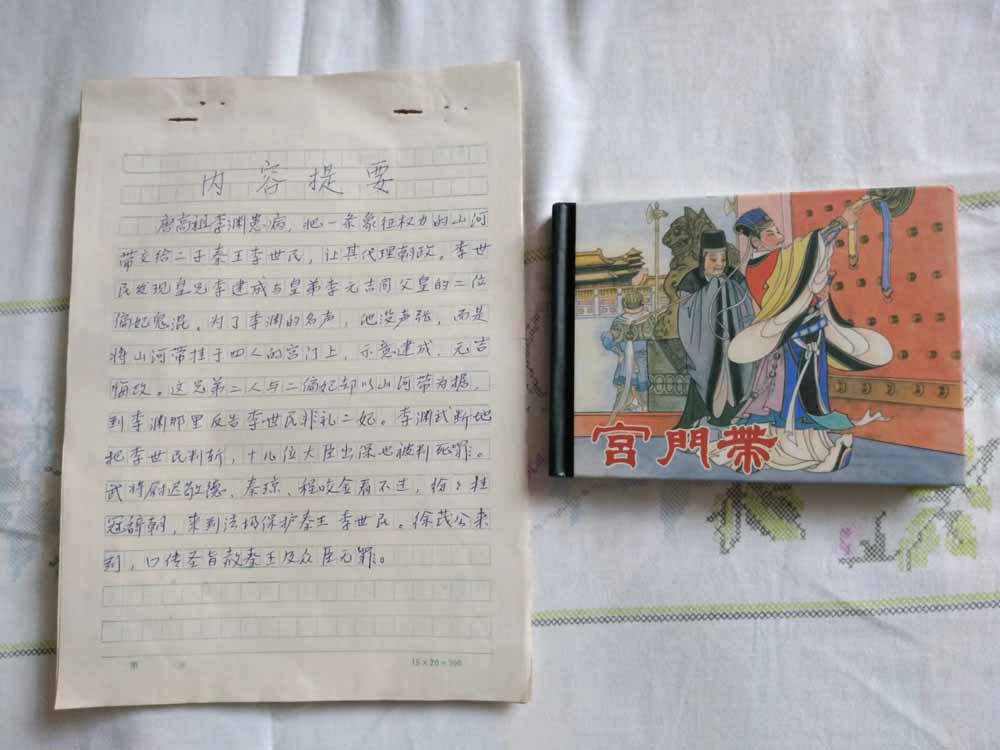 内容提要
唐高祖李渊患病，把一条象征权力的山河
带交给二子秦王李世民，让其代理朝政。李世
民发现皇兄李建成与皇弟李元吉同父皇的二位
偏妃鬼混。为了李渊的名声，他没声张，而是
将山河带挂于四人的宫门上，示意建成、元吉
悔改。这兄弟二人与二偏妃却以山河带为据，
到李渊那里反告李世民非礼二妃。李渊武断地
把李世民判斩，十几位大臣出保也被判死罪。
武将尉迟敬德、秦琼、程咬金看不过，纷纷挂
冠辞朝，来到法场保护秦王李世民。徐茂公来
到，口传圣旨赦秦王及众臣无罪。
第
15×20=300
宫門帶